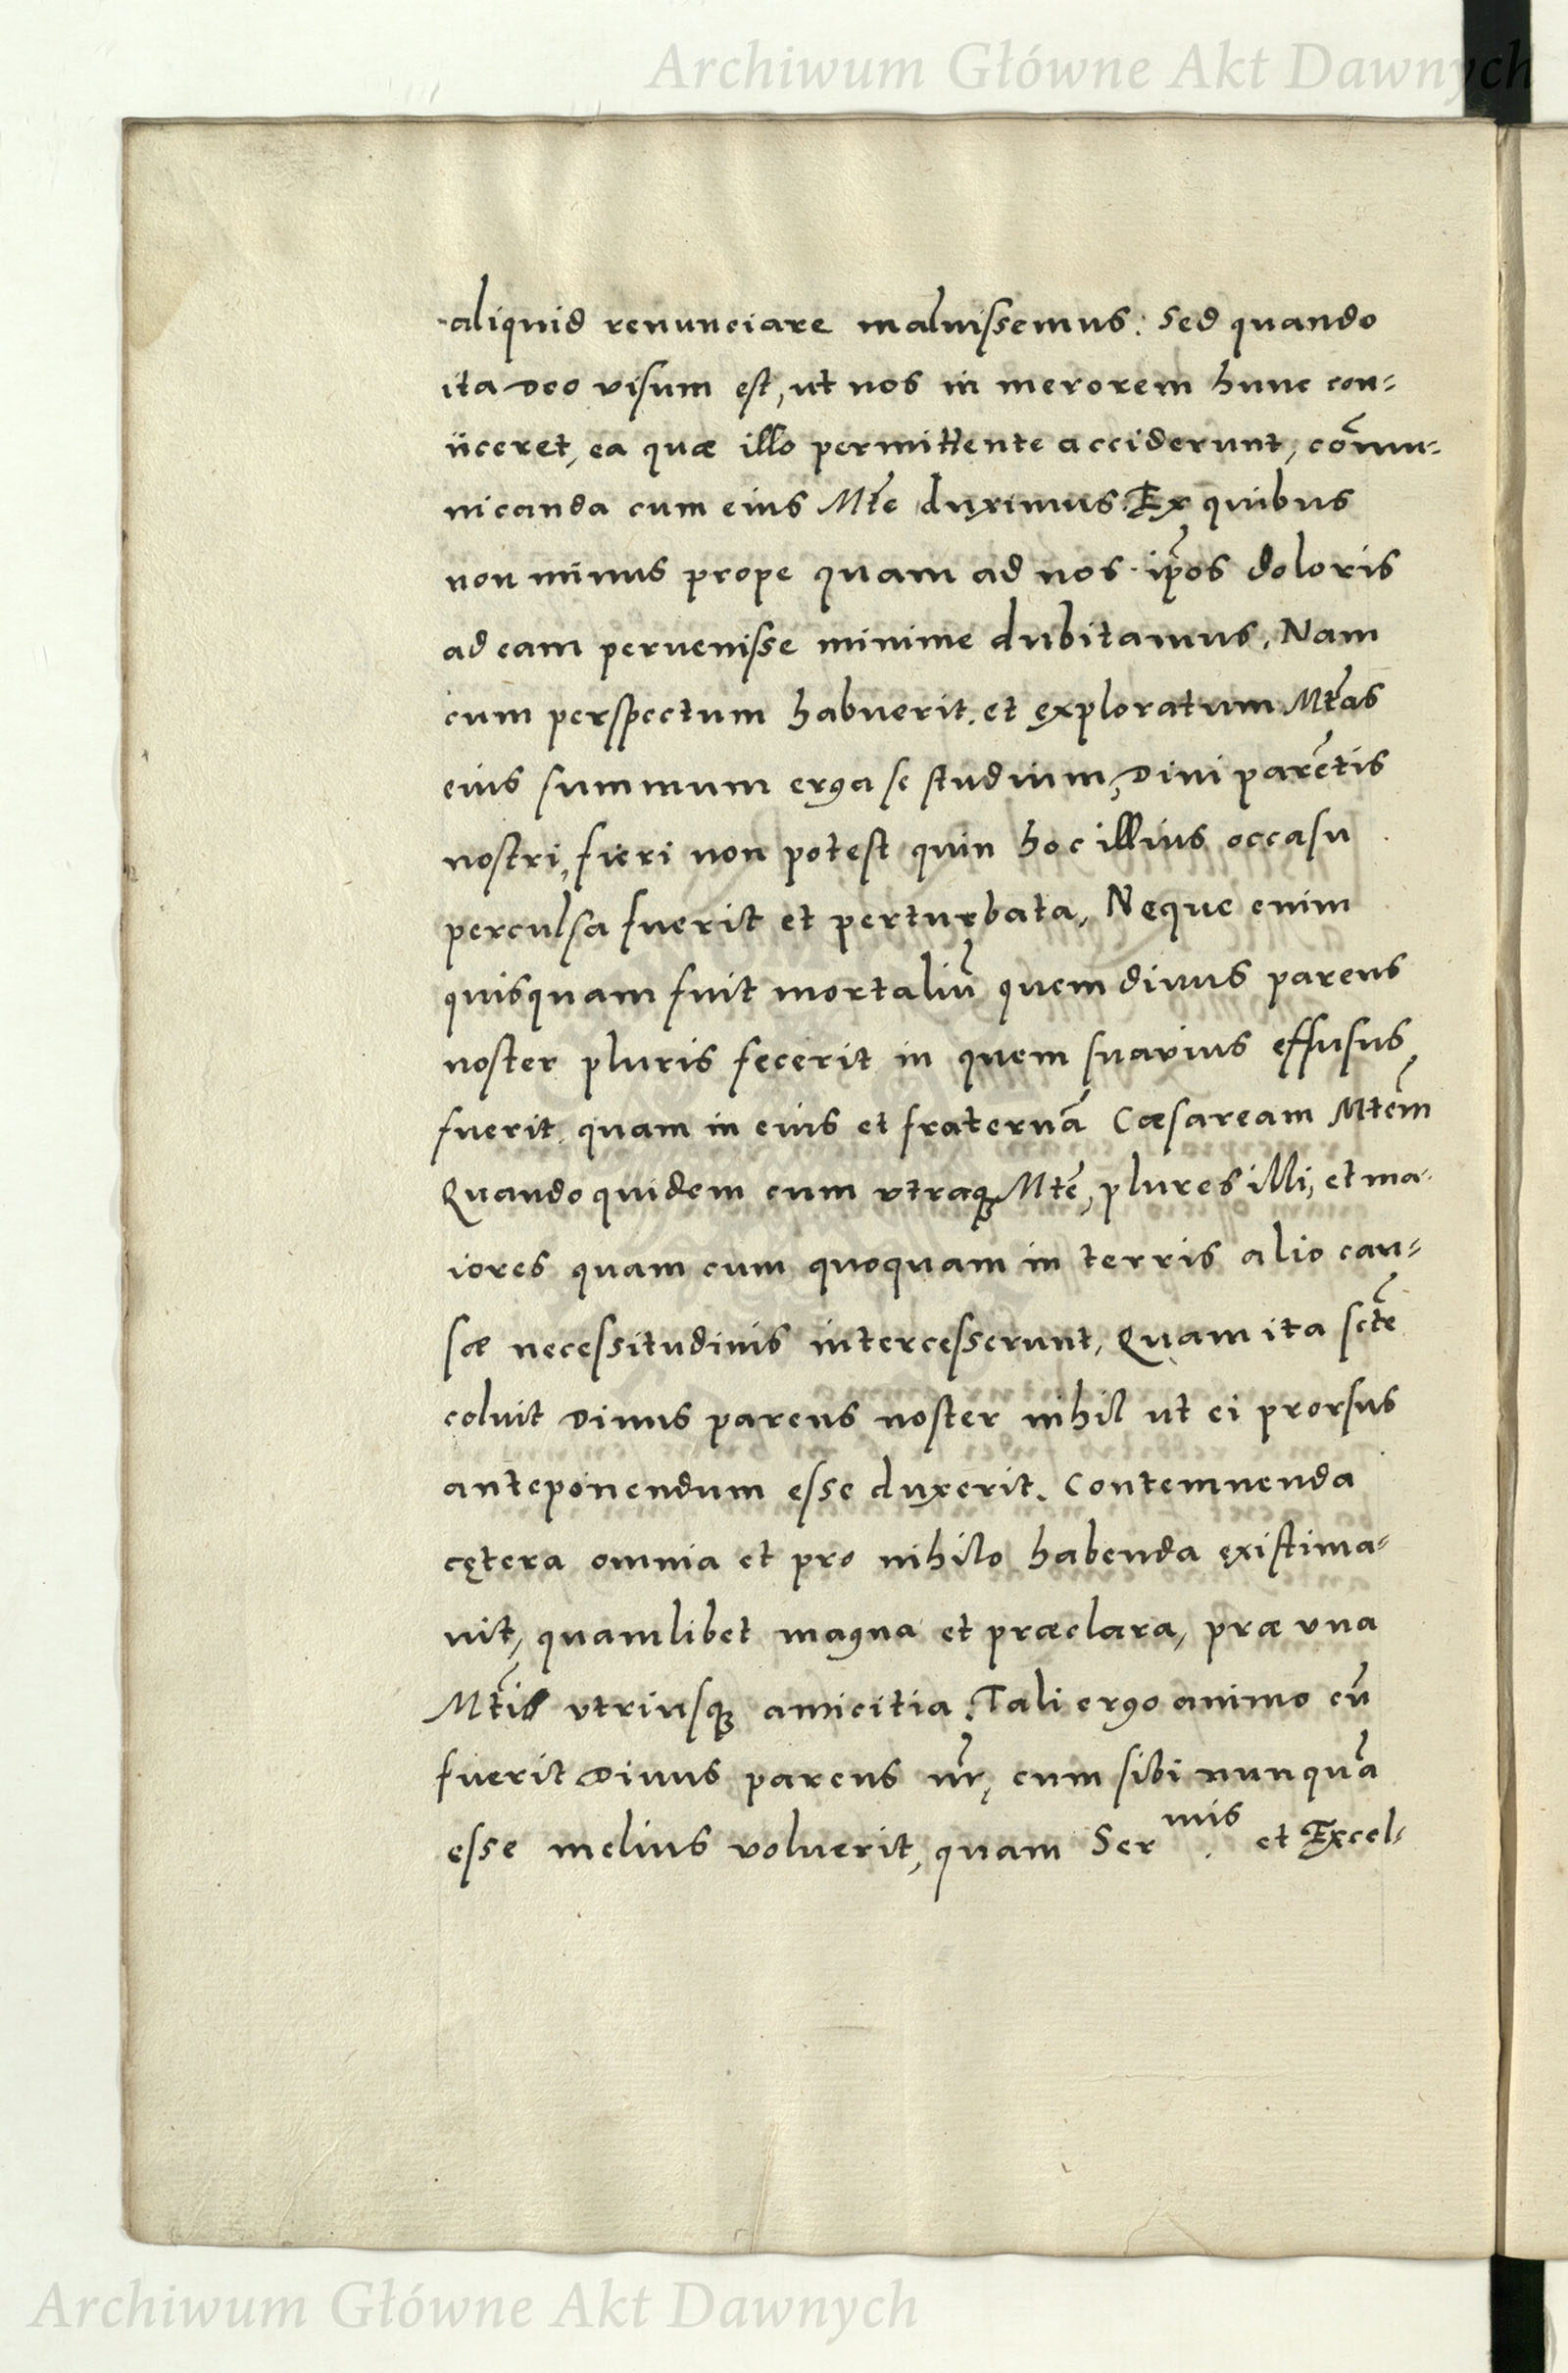 Archiwum Główne Akt Dawnych
aliquid renunciare maluissemus: Sed quando
ita Deo visum est, ut nos in merorem hunc con=
iiceret, ea quæ illo permittente acciderunt, com̃u=
nicanda cum eius Mte͂ duximus. Ex quibus
non minus prope quam ad nos ip̃os doloris
ad eam peruenisse minime dubitamus. Nam
cum perspectum habuerit, et exploratum Mta͂s
eius summum erga se studium, Diui pare͂tis
nostri, fieri non potest quin hoc illius occasu
perculsa fuerit et perturbata. Neque enim
quisquam fuit mortaliu͂ quem diuus parens
noster pluris fecerit in quem suavius effusus
fuerit, quam in eius et fraterna͂ Cæsaream Mte͂m
Quandoquidem cum vtraqꝫ Mte͂, plures illi, et ma=
iores quam cum quoquam in terris alio cau=
sæ necessitudinis intercesserunt, Quam ita scte͂
coluit Diuus parens noster nihil ut ei prorsus
anteponendum esse duxerit. Contemnenda
cętera omnia et pro nihilo habenda existima=
uit, quamlibet magna et præclara, præ vna
Mti͂s vtriusqꝫ amicitia. Tali ergo animo cu͂
fuerit Diuus parens nr͂, cum sibi nunqua͂
esse melius voluerit, quam Ser^mis et Excel=
Archiwum Główne Akt Dawnych